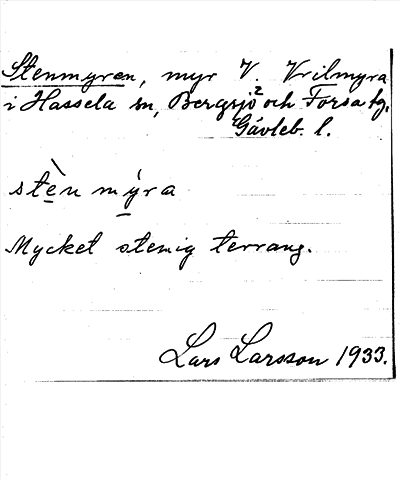 Stenmyran, myr V. Vrilmyra
i Hassela sn, Bergsjö och Forsa tg,
Gävleb. l.
stèn mýra
Mycket stenig terräng.
Lars Larsson 1933.